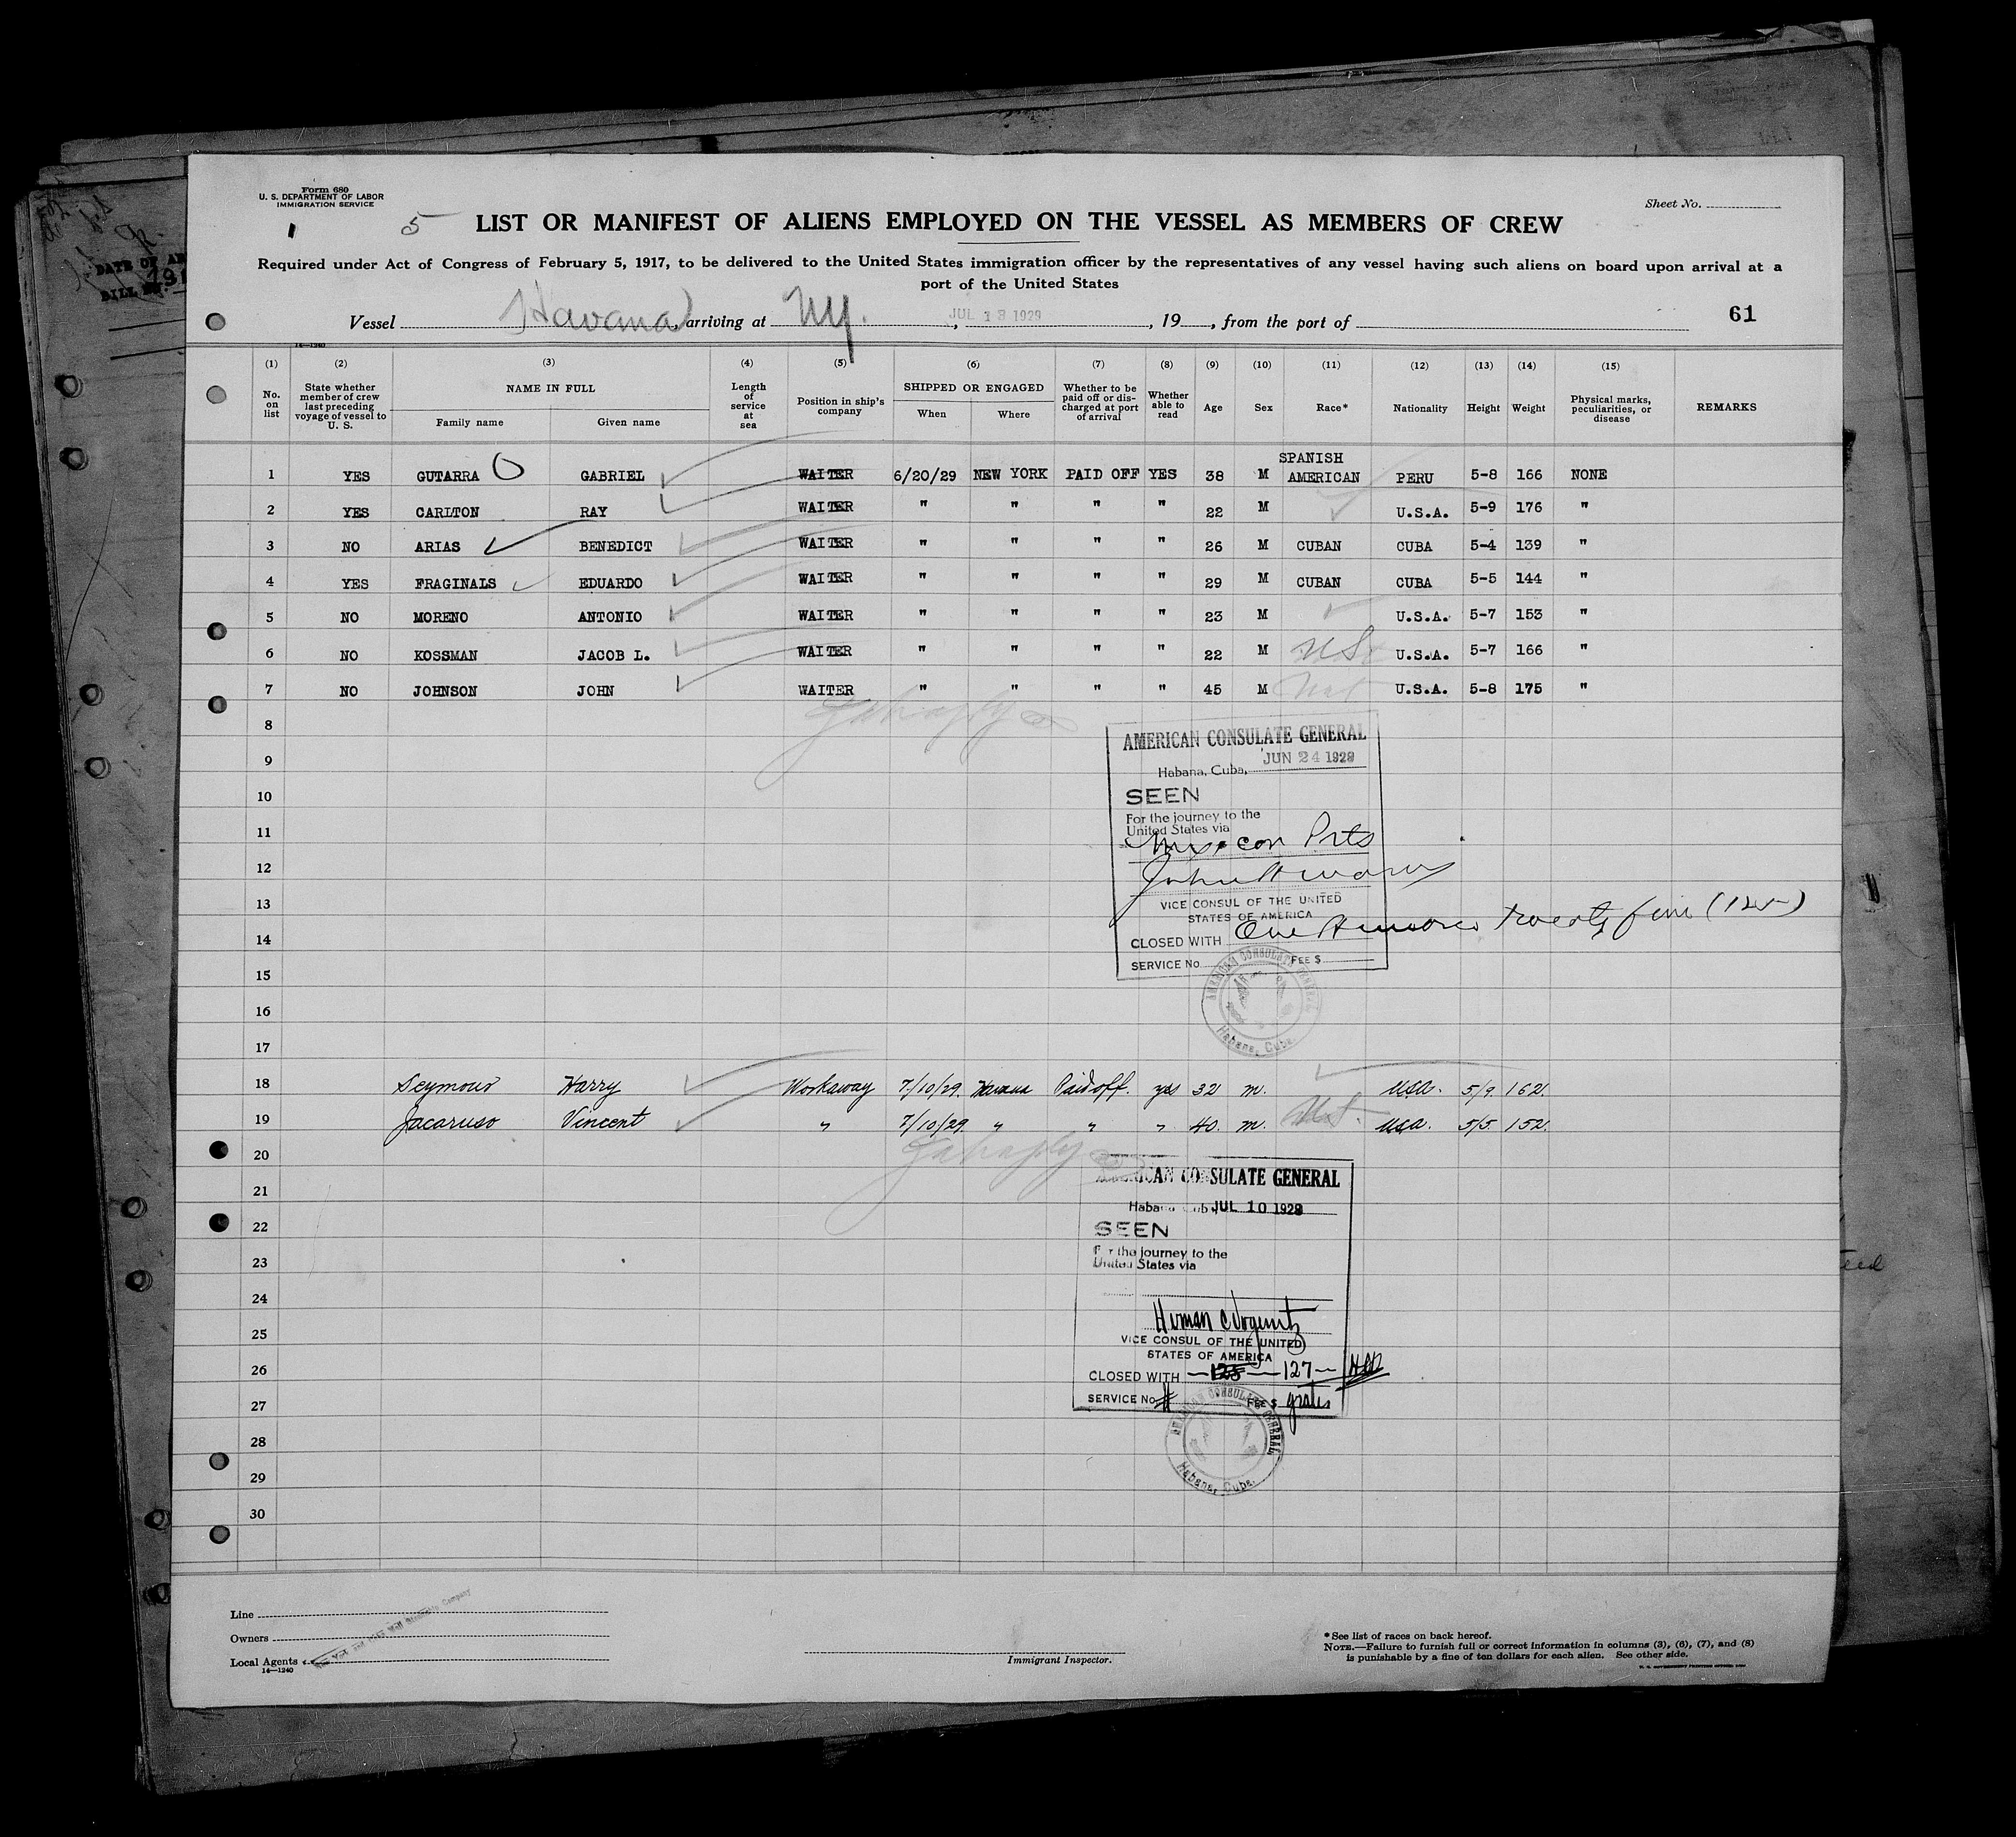 Form 680
U. S. DEPARTMENT OF LABOR
IMMIGRATION SERVICE
5
LIST OR MANIFEST OF ALIENS EMPLOYED ON THE VESSEL AS MEMBERS OF CREW
Sheet No.
Required under Act of Congress of February 5, 1917, to be delivered to the United States immigration officer by the representatives of any vessel having such aliens on board upon arrival at a
port of the United States
Vessel Havana, arriving at NY., JUL 13 1929, 19__, from the port of
61
14—1240
(1) (2) (3) (4) (5) (6) (7) (8) (9) (10) (11) (12) (13) (14) (15)
No. on list
State whether member of crew last preceding voyage of vessel to U. S.
NAME IN FULL
Family name
Given name
Length of service at sea
Position in ship's company
SHIPPED OR ENGAGED
When
Where
Whether to be paid off or discharged at port of arrival
Whether able to read
Age
Sex
Race*
Nationality
Height
Weight
Physical marks, peculiarities, or disease
REMARKS
1 YES GUTARRA GABRIEL WAITER 6/20/29 NEW YORK PAID OFF YES 38 M SPANISH AMERICAN PERU 5-8 166 NONE
2 YES CARLTON RAY WAITER " " " " 22 M U.S.A. 5-9 176 "
3 NO ARIAS BENEDICT WAITER " " " " 26 M CUBAN CUBA 5-4 139 "
4 YES FRAGINALS EDUARDO WAITER " " " " 29 M CUBAN CUBA 5-5 144 "
5 NO MORENO ANTONIO WAITER " " " " 23 M U.S.A. 5-7 153 "
6 NO KOSSMAN JACOB L. WAITER " " " " 22 M US U.S.A. 5-7 166 "
7 NO JOHNSON JOHN WAITER " " " " 45 M Nat U.S.A. 5-8 175 "
8
9
10
11
12
13
14
15
16
17
AMERICAN CONSULATE GENERAL
Habana, Cuba, JUN 24 1929
SEEN
For the journey to the
United States via
Mexican Prts
VICE CONSUL OF THE UNITED
STATES OF AMERICA
CLOSED WITH One Hundred twenty five (125)
SERVICE No FEE $
AMERICAN CONSULATE GENERAL
Habana, Cuba.
18 Seymour Harry Workaway 7/10/29. Havana Paid off. yes 32 m. USA. 5/9. 162.
19 Jacaruso Vincent " 7/10/29. " " " 40. m. US. USA. 5/5. 152.
20
21
22
23
24
25
26
27
28
29
30
AMERICAN CONSULATE GENERAL
Habana Cuba JUL 10 1929
SEEN
For the journey to the
United States via
VICE CONSUL OF THE UNITED
STATES OF AMERICA
CLOSED WITH —125— 127—
SERVICE No. FEE $ gratis
AMERICAN CONSULATE GENERAL
Habana, Cuba.
Line
Owners
Local Agents
14—1240
Immigrant Inspector.
*See list of races on back hereof.
NOTE.—Failure to furnish full or correct information in columns (3), (6), (7), and (8)
is punishable by a fine of ten dollars for each alien. See other side.